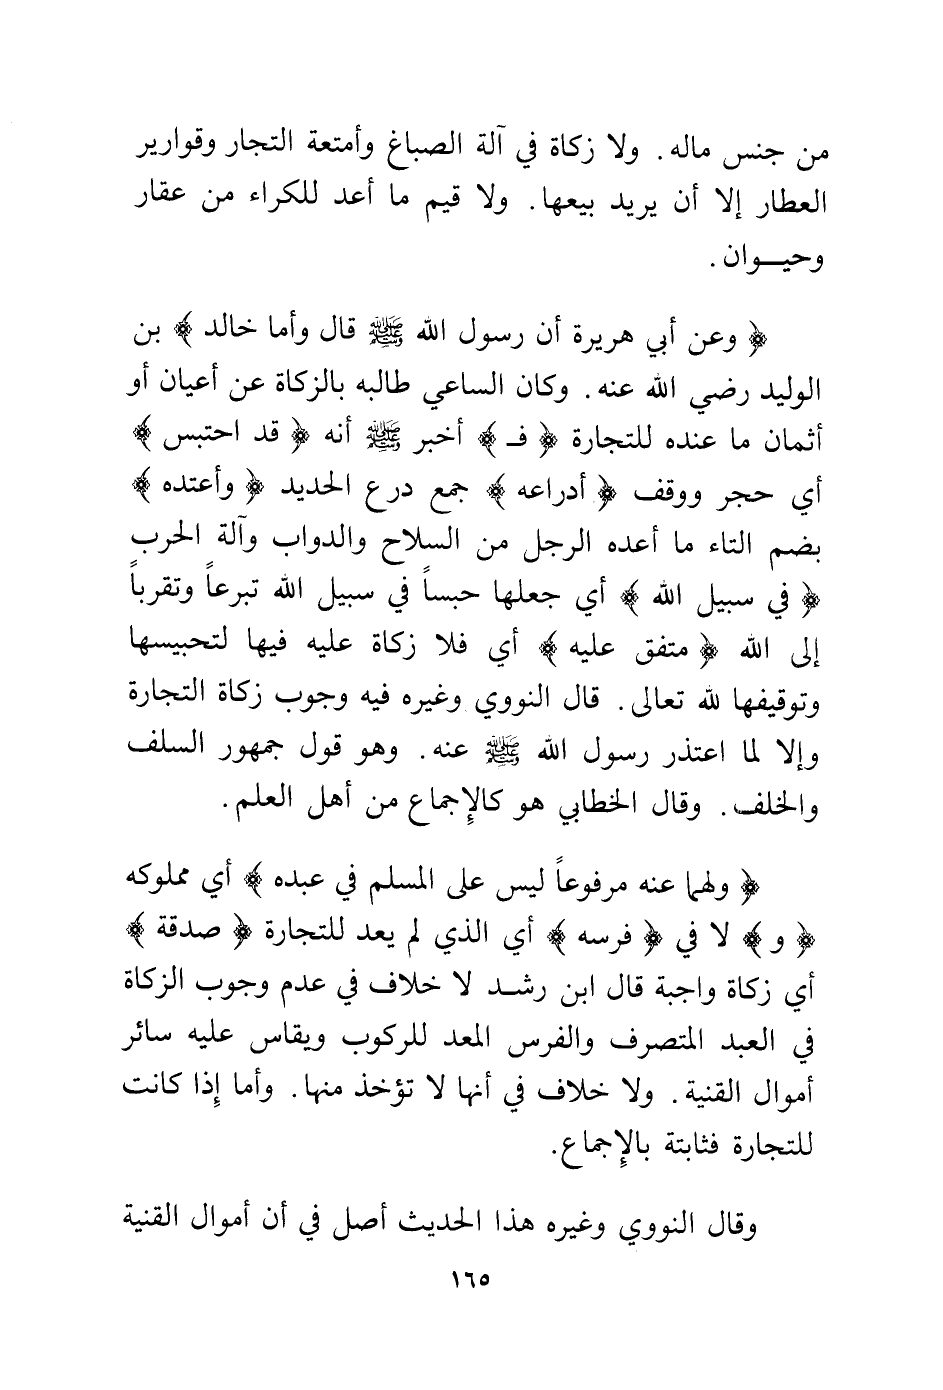 من جنس ماله. ولا زكاة في آلة الصباغ وأمتعة التجار وقوارير
العطار إلا أن يريد بيعها. ولا قيم ما أعد للكراء من عقار
وحيـوان.
﴿ وعن أبي هريرة أن رسول الله ﷺ قال وأما خالد ﴾ بن
الوليد رضي الله عنه. وكان الساعي طالبه بالزكاة عن أعيان أو
أثمان ما عنده للتجارة ﴿ فـ ﴾ أخبر ﷺ أنه ﴿ قد احتبس ﴾
أي حجر ووقف ﴿ أدراعه ﴾ جمع درع الحديد ﴿ وأعتده ﴾
بضم التاء ما أعده الرجل من السلاح والدواب وآلة الحرب
﴿ في سبيل الله ﴾ أي جعلها حبساً في سبيل الله تبرعاً وتقرباً
إلى الله ﴿ متفق عليه ﴾ أي فلا زكاة عليه فيها لتحبيسها
وتوقيفها لله تعالى. قال النووي وغيره فيه وجوب زكاة التجارة
وإلا لما اعتذر رسول الله ﷺ عنه. وهو قول جمهور السلف
والخلف. وقال الخطابي هو كالإجماع من أهل العلم.
﴿ ولهما عنه مرفوعاً ليس على المسلم في عبده ﴾ أي مملوكه
﴿ و ﴾ لا في ﴿ فرسه ﴾ أي الذي لم يعد للتجارة ﴿ صدقة ﴾
أي زكاة واجبة قال ابن رشـد لا خلاف في عدم وجوب الزكاة
في العبد المتصرف والفرس المعد للركوب ويقاس عليه سائر
أموال القنية. ولا خلاف في أنها لا تؤخذ منها. وأما إذا كانت
للتجارة فثابتة بالإجماع.
وقال النووي وغيره هذا الحديث أصل في أن أموال القنية
١٦٥